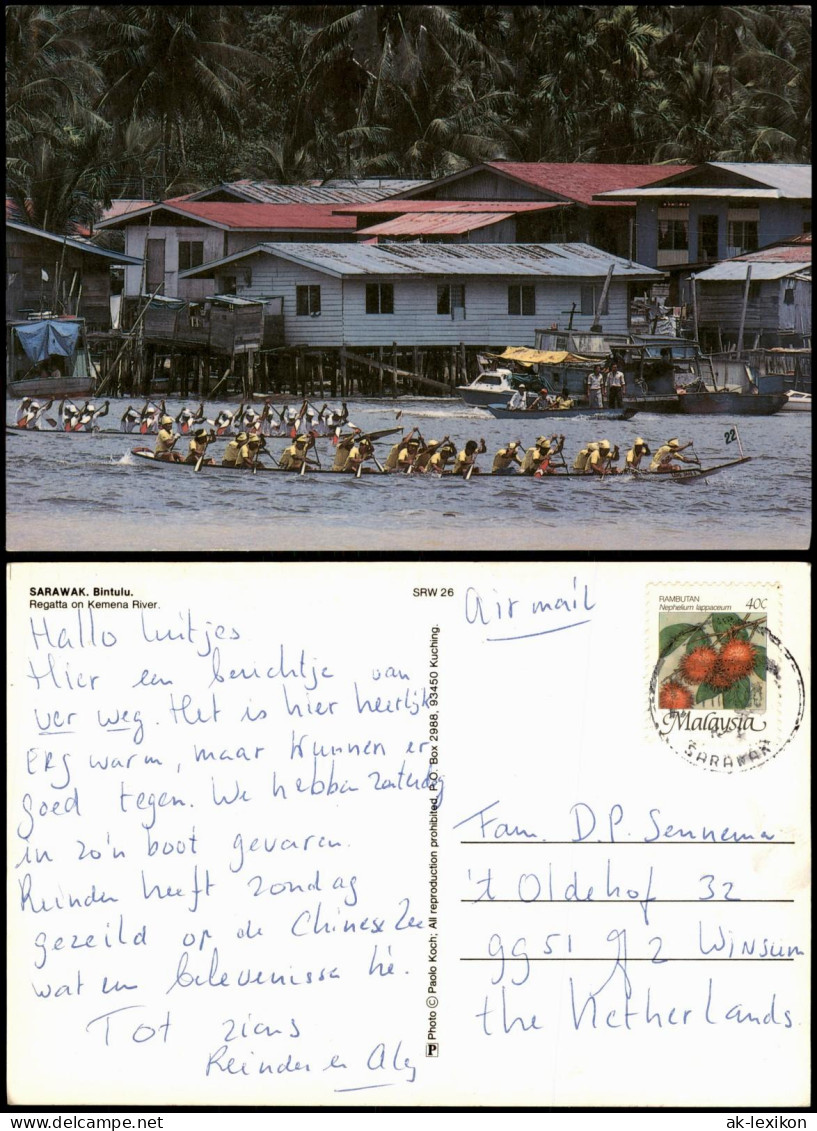 22
SARAWAK. Bintulu.
Regatta on Kemena River.
SRW 26
Hallo luitjes
Hier een berichtje van
ver weg. Het is hier heerlijk
Erg warm, maar kunnen er
goed tegen. We hebben zaterdag
in zo'n boot gevaren.
Reinder heeft zondag
gezeild op de Chinese Zee
wat een belevenissen hè.
Tot ziens
Reinder en Aly
Photo © Paolo Koch; All reproduction prohibited, P.O. Box 2988, 93450 Kuching.
P
Air mail
RAMBUTAN
Nephelium lappaceum 40¢
Malaysia
SARAWAK
Fam. D.P. Sennema
't Oldehof 32
9951 Winsum
the Netherlands.
ak-lexikon
www.ak-ansichtskarten.de / ak-lexikon.com